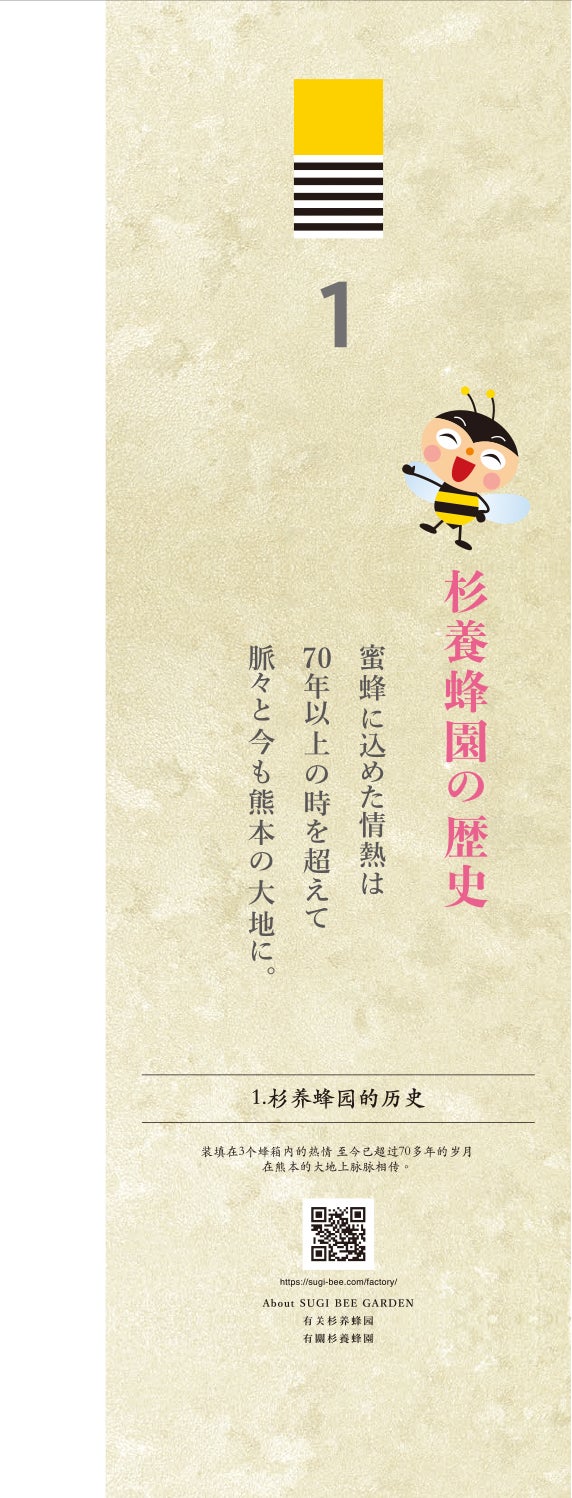 1
杉養蜂園の歴史
蜜蜂に込めた情熱は
70年以上の時を超えて
脈々と今も熊本の大地に。
1.杉养蜂园的历史
装填在3个蜂箱内的热情 至今已超过70多年的岁月
在熊本的大地上脉脉相传。
https://sugi-bee.com/factory/
About SUGI BEE GARDEN
有关杉养蜂园
有關杉養蜂園